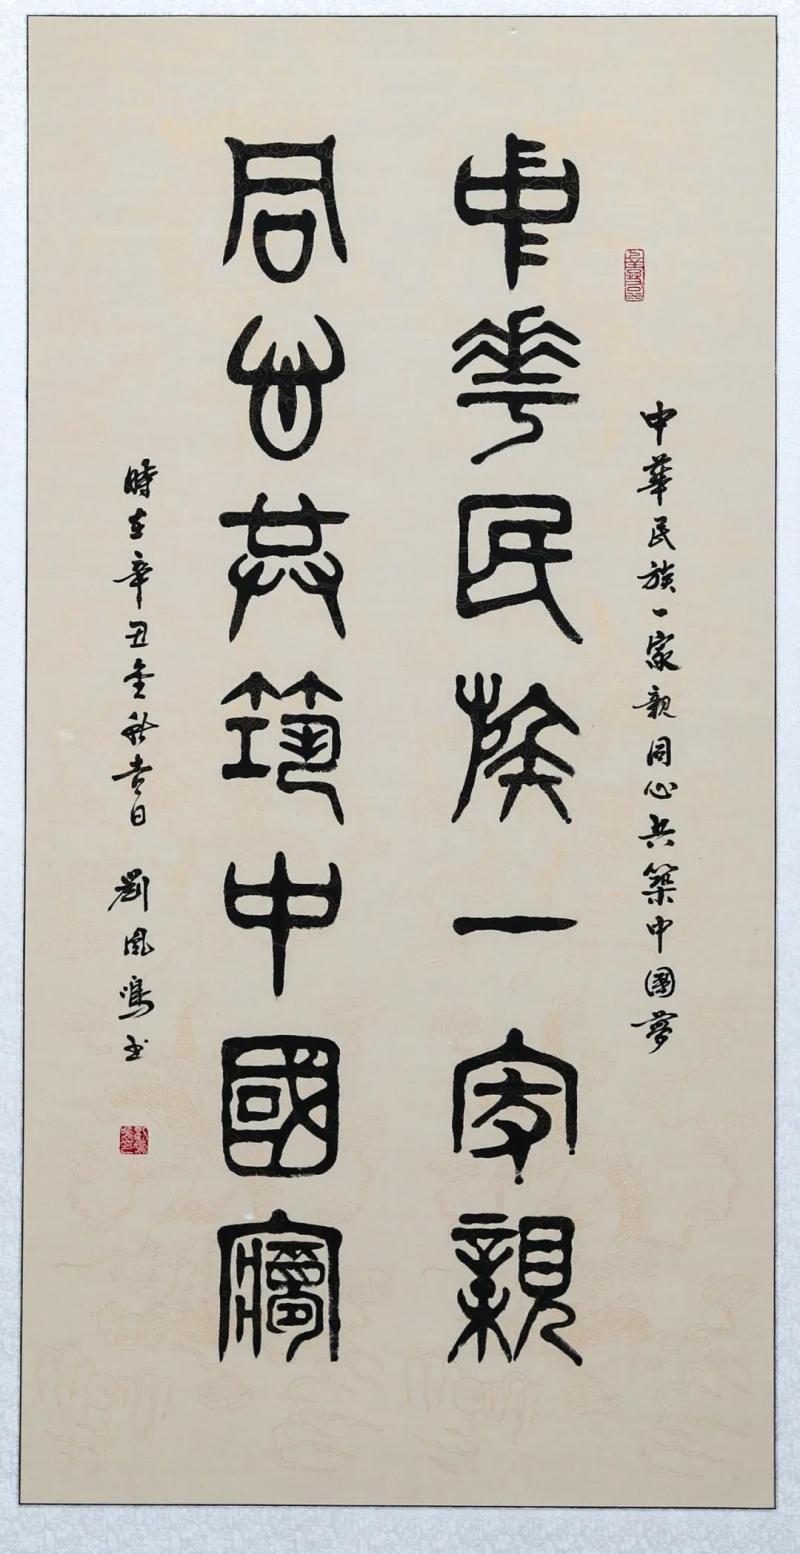 中華民族一家親同心共築中國夢
中華民族一家親
同心共築中國夢
時在辛丑金秋吉日 劉鳳鳴書